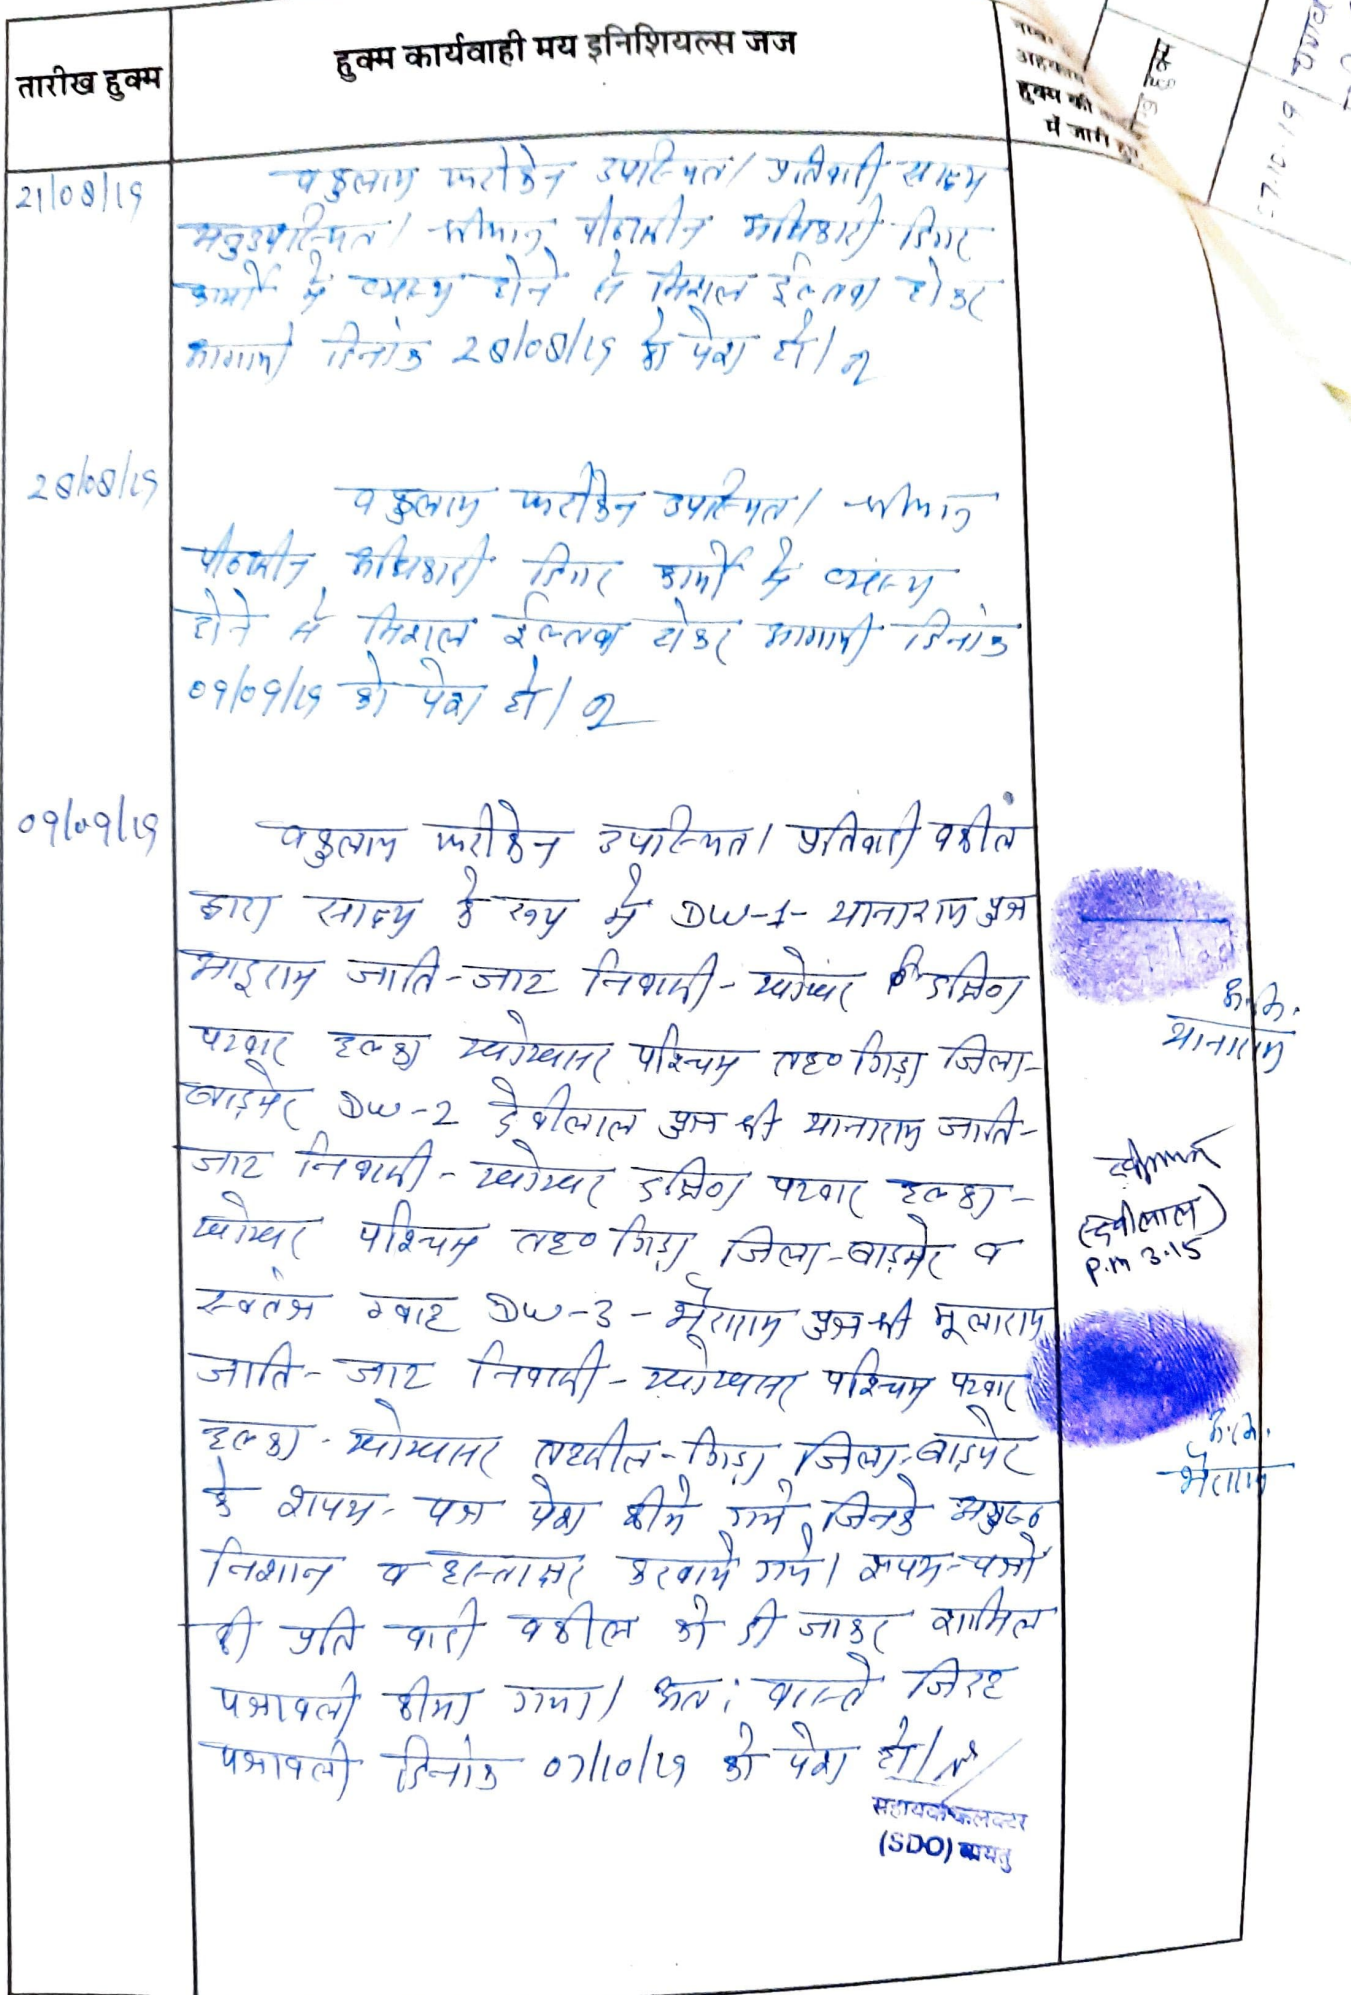 तारीख हुक्म
हुक्म कार्यवाही मय इनिशियल्स जज
हुक्म की
में जारी हुए
हुक्म
7.10.19
21/08/19
वकुलाय फरीकेन उपस्थित। प्रतिवादी साक्ष्य
अनुउपस्थित। श्रीमान् पीठासीन अधिकारी दिगर
कार्यों में व्यस्त होने से मिशल ईल्तवा होकर
आगामी दिनांक 28/08/19 को पेश हो।
28/08/19
वकुलाय फरीकेन उपस्थित। श्रीमान्
पीठासीन अधिकारी दिगर कार्यों में व्यस्त
होने से मिशल ईल्तवा होकर आगामी दिनांक
09/09/19 को पेश हो।
09/09/19
वकुलाय फरीकेन उपस्थित। प्रतिवादी वकील
द्वारा साक्ष्य के रूप में DW-1- थानाराम पुत्र
जाति-जाट निवासी- दक्षिण
पटवार हल्का पश्चिम तह० गिड़ा जिला-
बाड़मेर DW-2 देवीलाल पुत्र श्री थानाराम जाति-
जाट निवासी- दक्षिण पटवार हल्का-
पश्चिम तह० गिड़ा जिला-बाड़मेर व
स्वतंत्र गवाह DW-3- भैराराम पुत्र श्री मूलाराम
जाति- जाट निवासी- पश्चिम पटवार
हल्का- तहसील-गिड़ा जिला-बाड़मेर
के शपथ-पत्र पेश कीये गये, जिनके अंगुष्ठ
निशान व हस्ताक्षर करवाये गये। शपथ-पत्रों
की प्रति वादी वकील को दी जाकर शामिल
पत्रावली कीया गया। अतः वास्ते जिरह
पत्रावली दिनांक 07/10/19 को पेश हो।
सहायक कलक्टर
(SDO) बायतु
थानाराम
(देवीलाल)
P.M 3.15
भैराराम